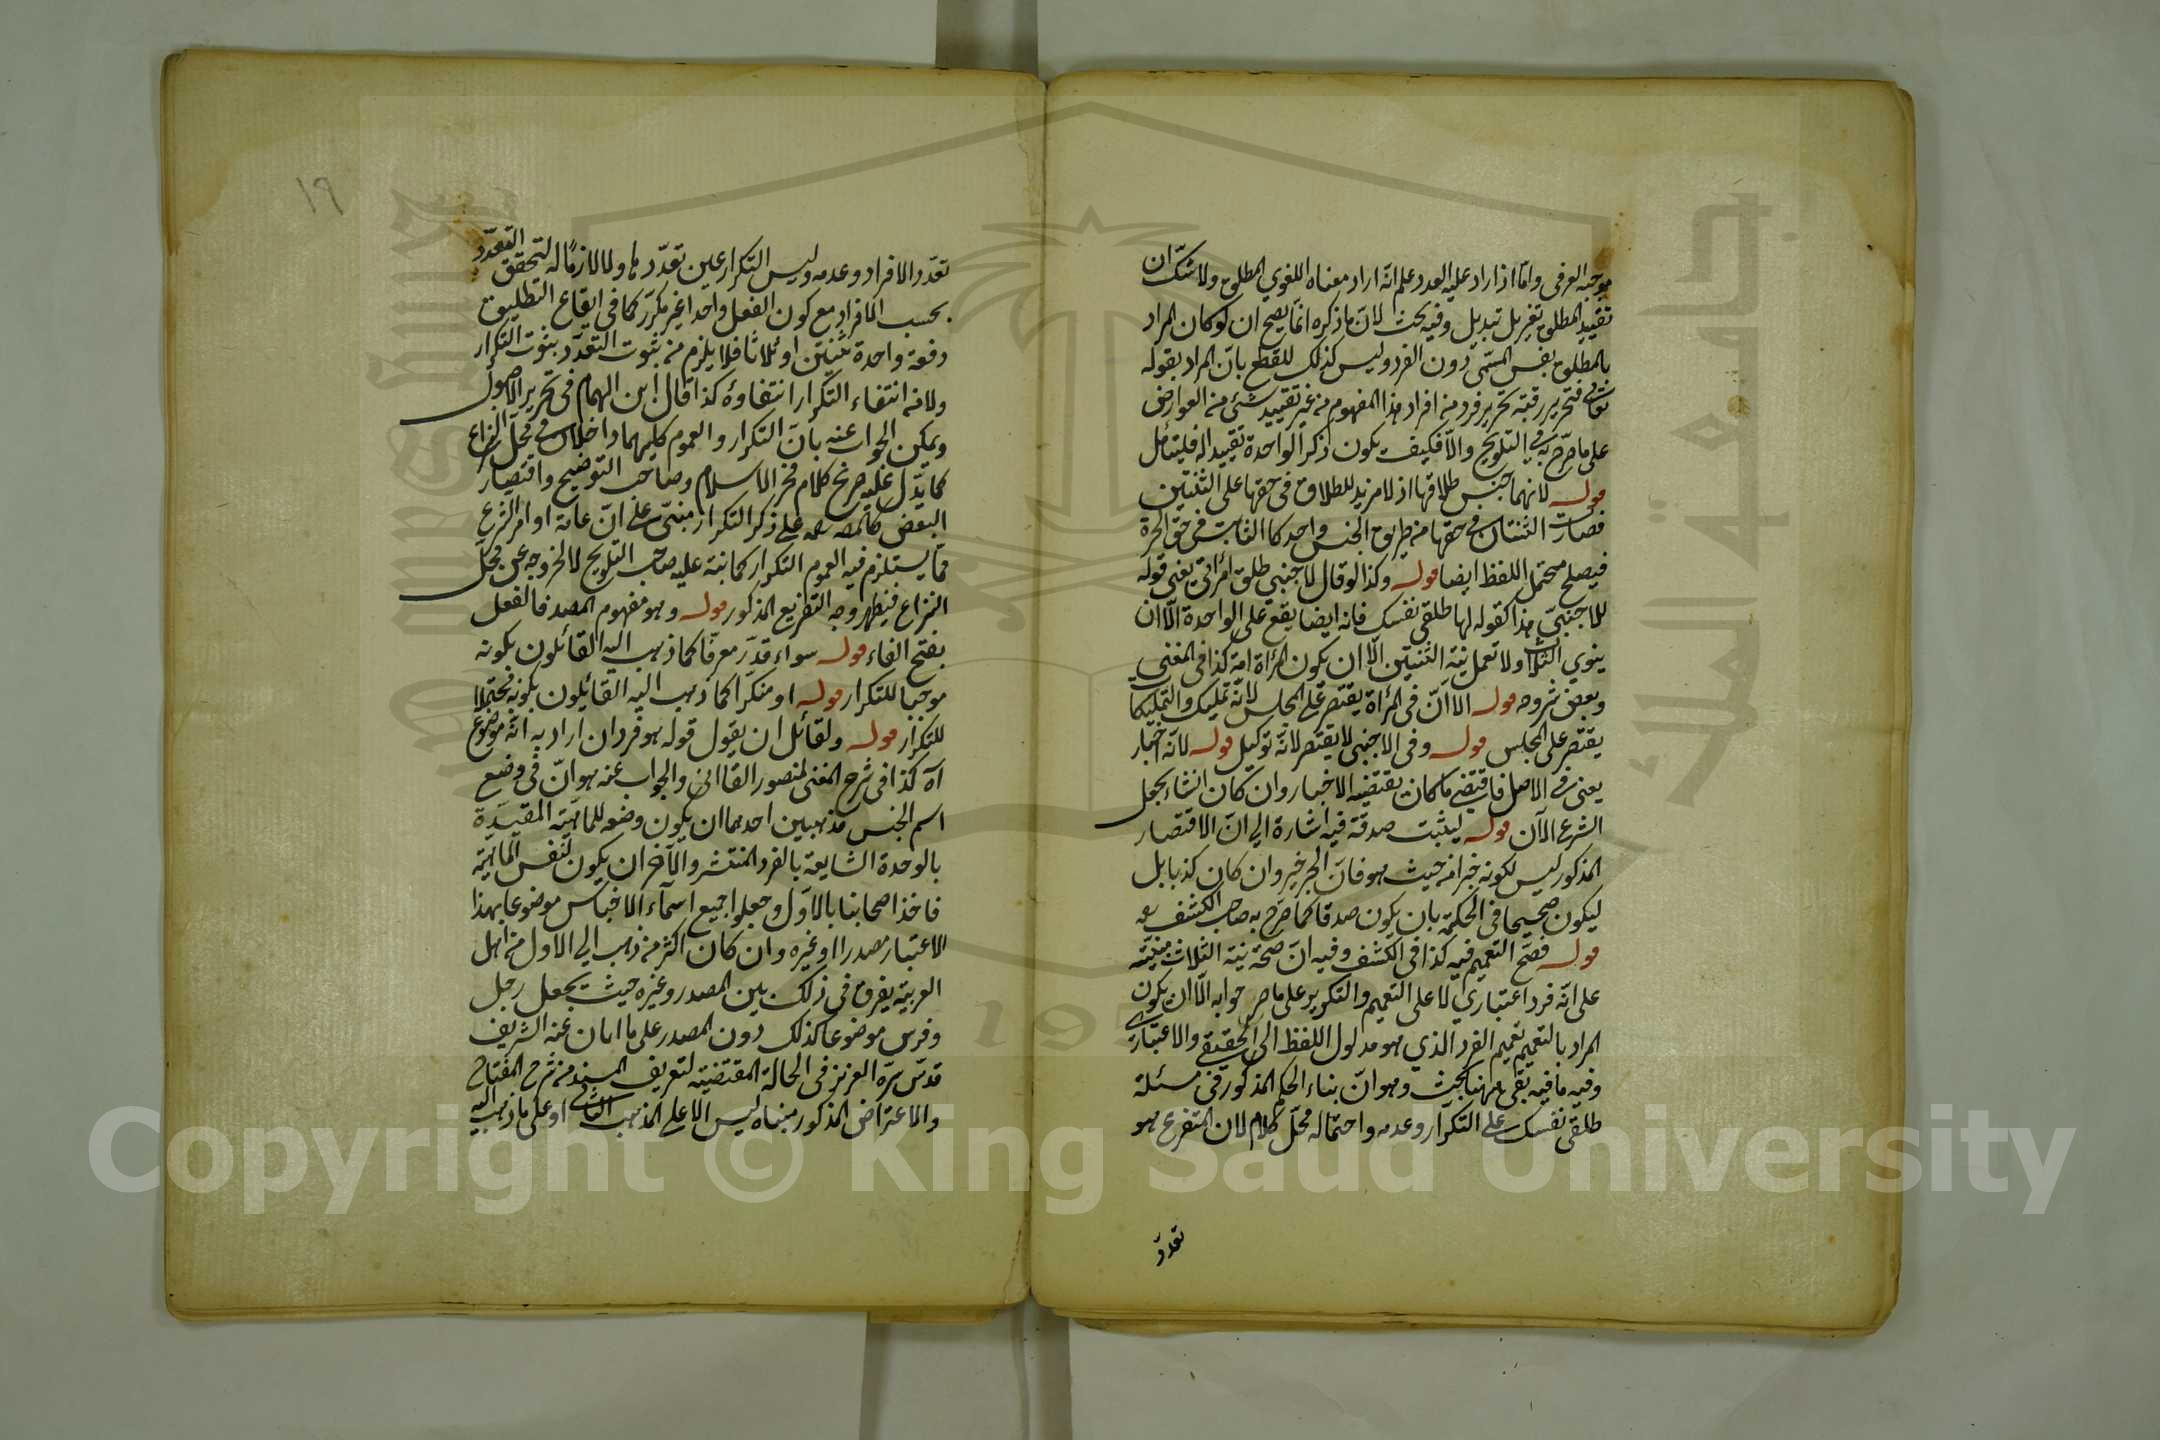 موجبه العرفي واما اذا زاد عليه العدد علم انه اراد معناه اللغوي المطلق ولا شك ان
تقييد المطلق تغيير بل تبديل وفيه بحث لان ما ذكره انما يصح ان لو كان المراد
بالمطلق نفس المسمى دون الفرد وليس كذلك للقطع بان المراد بقوله
تعالى فتحرير رقبة تحرير فرد من افراد هذا المفهوم من غير تقييد بشئ من العوارض
على ما صرح به في التلويح والا فكيف يكون ذكر الواحدة تقييدا له فليتأمل
قوله لانهما جنس طلاقها اذ لا مزيد للطلاق في حقها على الثنتين
فصارت الثنتان في حقها من طريق الجنس واحدا كما الثالث في حق الحرة
فيصلح محتمل اللفظ ايضا قوله وكذا لو قال لاجنبي طلق امرأتي يعني قوله
للاجنبي هذا كقوله لها طلقي نفسك فانه ايضا يقع على الواحدة الا ان
ينوي الثلاث ولا تعمل نية الثنتين الا ان يكون المرأة امة كذا في المغني
وبعض شروحه قوله الا ان في المرأة يقتصر على المجلس لانه تمليك والتمليكات
يقتصر على المجلس قوله وفي الاجنبي لا يقتصر لانه توكيل قوله لانه اخبار
يعني في الاصل فاقتضى ما كان يقتضيه الاخبار وان كان انشاء بجعل
الشرع الآن قوله ليثبت صدقه فيه اشارة الى ان الاقتصار
المذكور ليس لكونه خبرا من حيث هو فان الخبر خبر وان كان كذبا بل
ليكون صحيحا في الحكمة بان يكون صدقا كما صرح به صاحب الكشف
قوله فصح التعميم فيه كذا في الكشف وفيه ان صحة نية الثلاث مبنية
على انه فرد اعتباري لا على التعميم والتكرير على ما صر جوابه الا ان يكون
المراد بالتعميم تعميم الفرد الذي هو مدلول اللفظ الى الحقيقي والاعتباري
وفيه ما فيه بقي ههنا بحث وهو ان بناء الحكم المذكور في مسئلة
طلقي نفسك على التكرار وعدمه واحتماله محل كلام لان المتفرع هو
تعدد
١٩
تعدد الافراد وعدمه وليس التكرار عين تعددها ولا لازما له لتحقق التعدد
بحسب الافراد مع كون الفعل واحدا غير مكرر كما في ايقاع التطليق
دفعة واحدة ثنتين او ثلاثا فلا يلزم من ثبوت التعدد ثبوت التكرار
ولا من انتفاء التكرار انتفاؤه كذا قال ابن الهمام في تحرير الاصول
ويمكن الجواب عنه بان التكرار والعموم كليهما داخلان في محل النزاع
كما يدل عليه صريح كلام فخر الاسلام وصاحب التوضيح واقتصار
البعض كالمص على ذكر التكرار مبني على ان عامة اوامر الشرع
مما يستلزم فيه العموم التكرار كما نبه عليه صاحب التلويح لا لخروجه عن محل
النزاع فيظهر وجه التفريع المذكور قوله وهو مفهوم المصدر فالفعل
بفتح الفاء قوله سواء قدر معرفا كما ذهب اليه القائلون بكونه
موجبا للتكرار قوله او منكرا كما ذهب اليه القائلون بكونه محتملا
للتكرار قوله ولقائل ان يقول قوله هو فرد ان اراد به انه موضوع
آه كذا في شرح المغني لمنصور القاآني والجواب عنه هو ان في وضع
اسم الجنس مذهبين احدهما ان يكون وضعه للماهية المقيدة
بالوحدة الشايعة بالفرد المنتشر والآخر ان يكون لنفس الماهية
فاخذ اصحابنا بالاول وجعلوا جميع اسماء الاجناس موضوعا بهذا
الاعتبار مصدرا او غيره وان كان اكثر من ذهب الى الاول من اهل
العربية يفرق في ذلك بين المصدر وغيره حيث يجعل رجل
وفرس موضوعا كذلك دون المصدر على ما ابان عنه الشريف
قدس سره العزيز في الحالة المقتضية لتعريف المسند من شرح المفتاح
والاعتراض المذكور مبناه ليس الا على المذهب الثاني او على ما ذهب اليه
Copyright © King Saud University